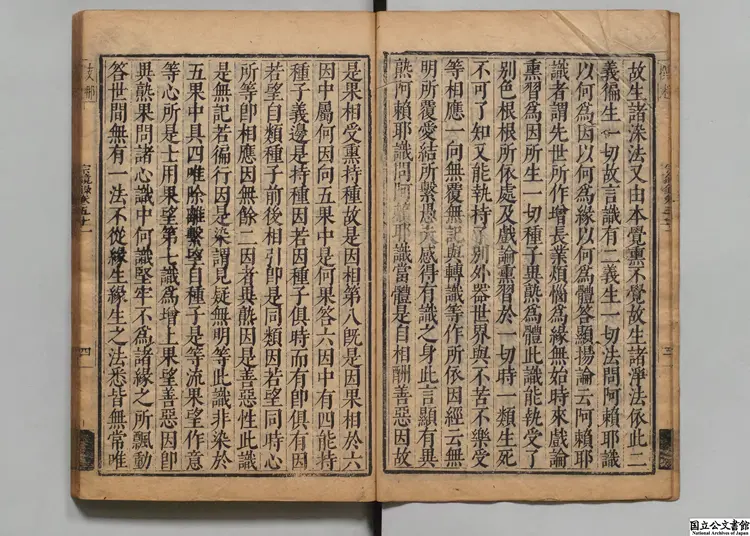 故生諸染法又由本覺熏不覺故生諸淨法依此二
義徧生一切故言識有二義生一切法問阿賴耶識
以何爲因以何爲緣以何爲體答顯揚論云阿賴耶
識者謂先世所作增長業煩惱爲緣無始時來戲論
熏習爲因所生一切種子異熟爲體此識能執受了
別色根根所依處及戲論熏習於一切時一類生死
不可了知又能執持了別外器世界與不苦不樂受
等相應一向無覆無記與轉識等作所依因經云無
明所覆愛結所繫愚夫感得有識之身此言顯有異
熟阿賴耶識問阿賴耶識當體是自相酬善惡因故
是果相受熏持種故是因相第八旣是因果相於六
因中屬何因向五果中是何果答六因中有四能持
種子義邊是持種因若因種子俱時而有卽俱有因
若望自類種子前後相引卽是同類因若望同時心
所等卽相應因無餘二因者異熟因是善惡性此識
是無記若徧行因是染謂見疑無明等此識非染於
五果中具四唯除離繫望自種子是等流果望作意
等心所是士用果望第七識爲增上果望善惡因卽
異熟果問諸心識中何識堅牢不爲諸緣之所飄動
答世間無有一法不從緣生緣生之法悉皆無常唯
三
四
国立公文書館
National Archives of Japan